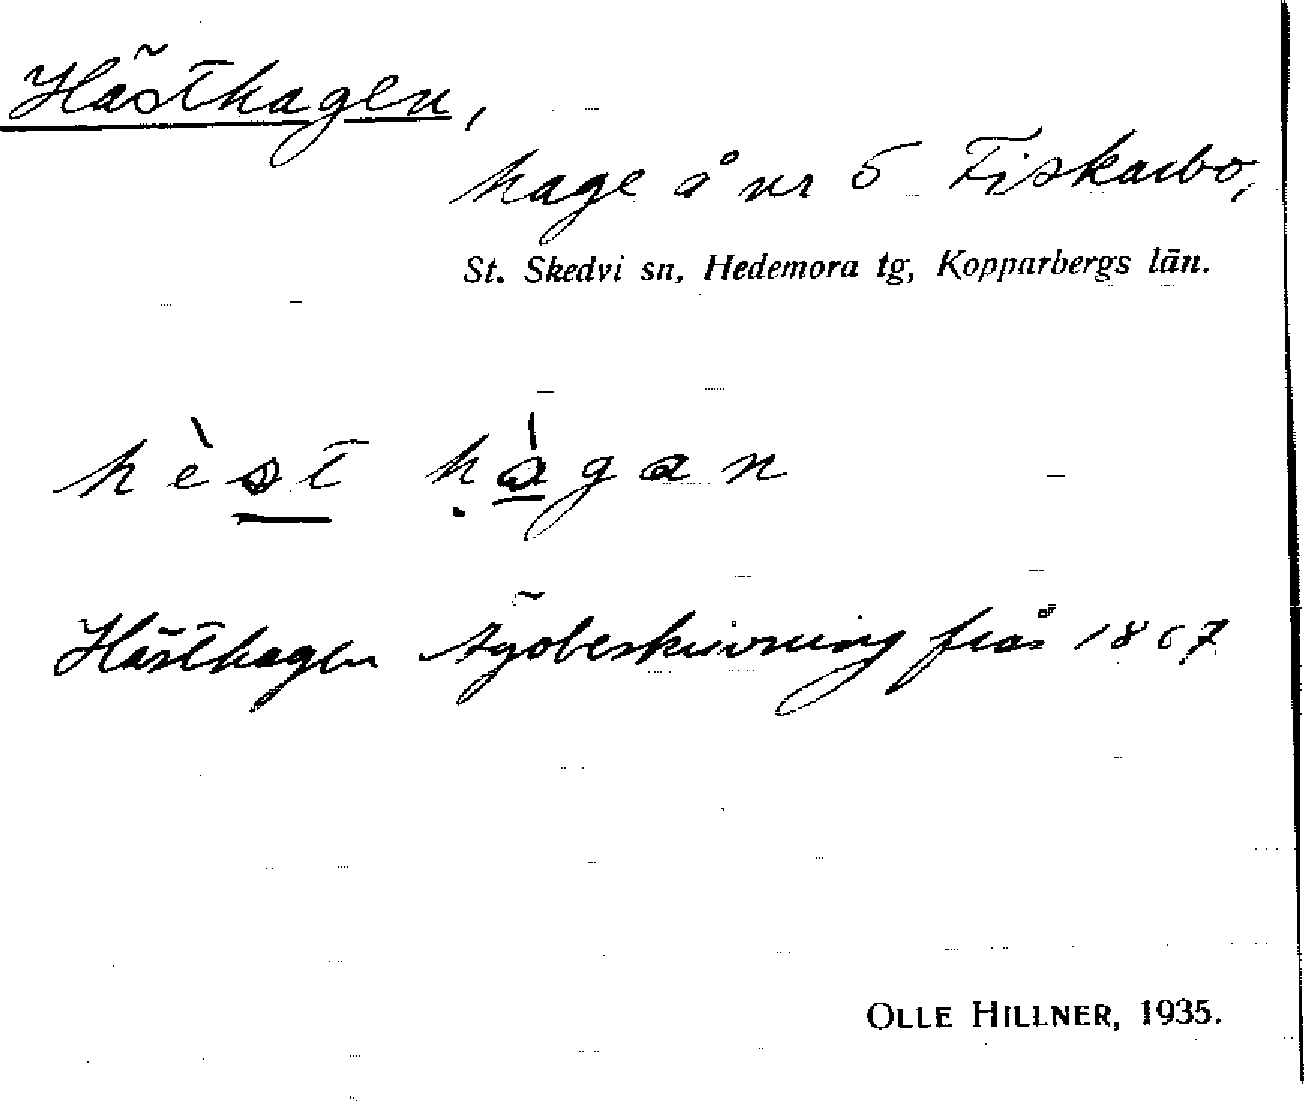 Hästhagen,
hage å nr 5 Fiskarbo,
St. Skedvi sn, Hedemora tg, Kopparbergs län.
hèst hàgan
Hästhagen Ägobeskrivning från 1867
OLLE HILLNER, 1935.